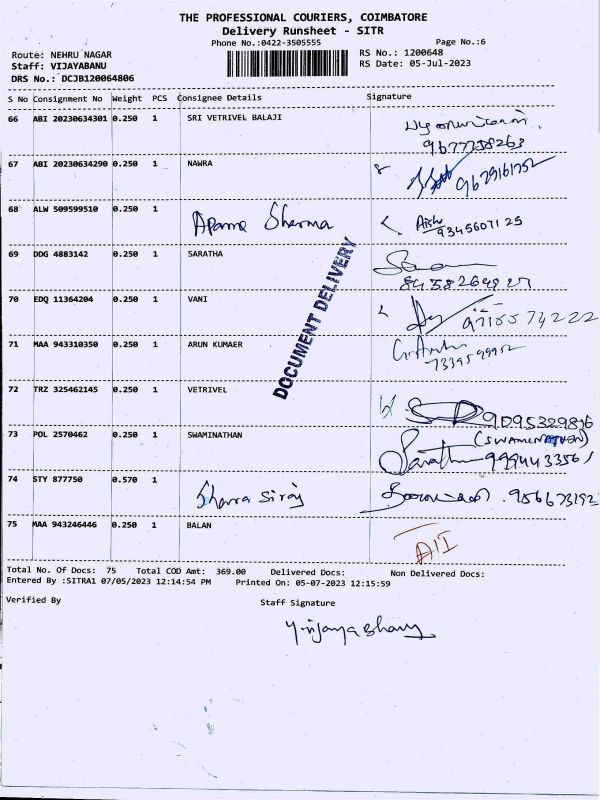 THE PROFESSIONAL COURIERS, COIMBATORE
Delivery Runsheet - SITR
Phone No.:0422-3505555 Page No.:6
Route: NEHRU NAGAR RS No.: 1200648
Staff: VIJAYABANU RS Date: 05-Jul-2023
DRS No.: DCJB120064806
S No Consignment No Weight PCS Consignee Details Signature
66 ABI 20230634301 0.250 1 SRI VETRIVEL BALAJI
9677758263
67 ABI 20230634290 0.250 1 NAWRA
9629161752
68 ALW 509599510 0.250 1 Aparna Sharma Aishu
9345607125
69 DDG 4883142 0.250 1 SARATHA
8438264827
70 EDQ 11364204 0.250 1 VANI
71 MAA 943310350 0.250 1 ARUN KUMAER
DOCUMENT DELIVERY
72 TRZ 325462145 0.250 1 VETRIVEL
9095329816
73 POL 2570462 0.250 1 SWAMINATHAN (SWAMINATHAN)
9994433561
74 STY 877750 0.570 1 Siraj 956673192
75 MAA 943246446 0.250 1 BALAN
Total No. Of Docs: 75 Total COD Amt: 369.00 Delivered Docs: Non Delivered Docs:
Entered By :SITRA1 07/05/2023 12:14:54 PM Printed On: 05-07-2023 12:15:59
Verified By Staff Signature